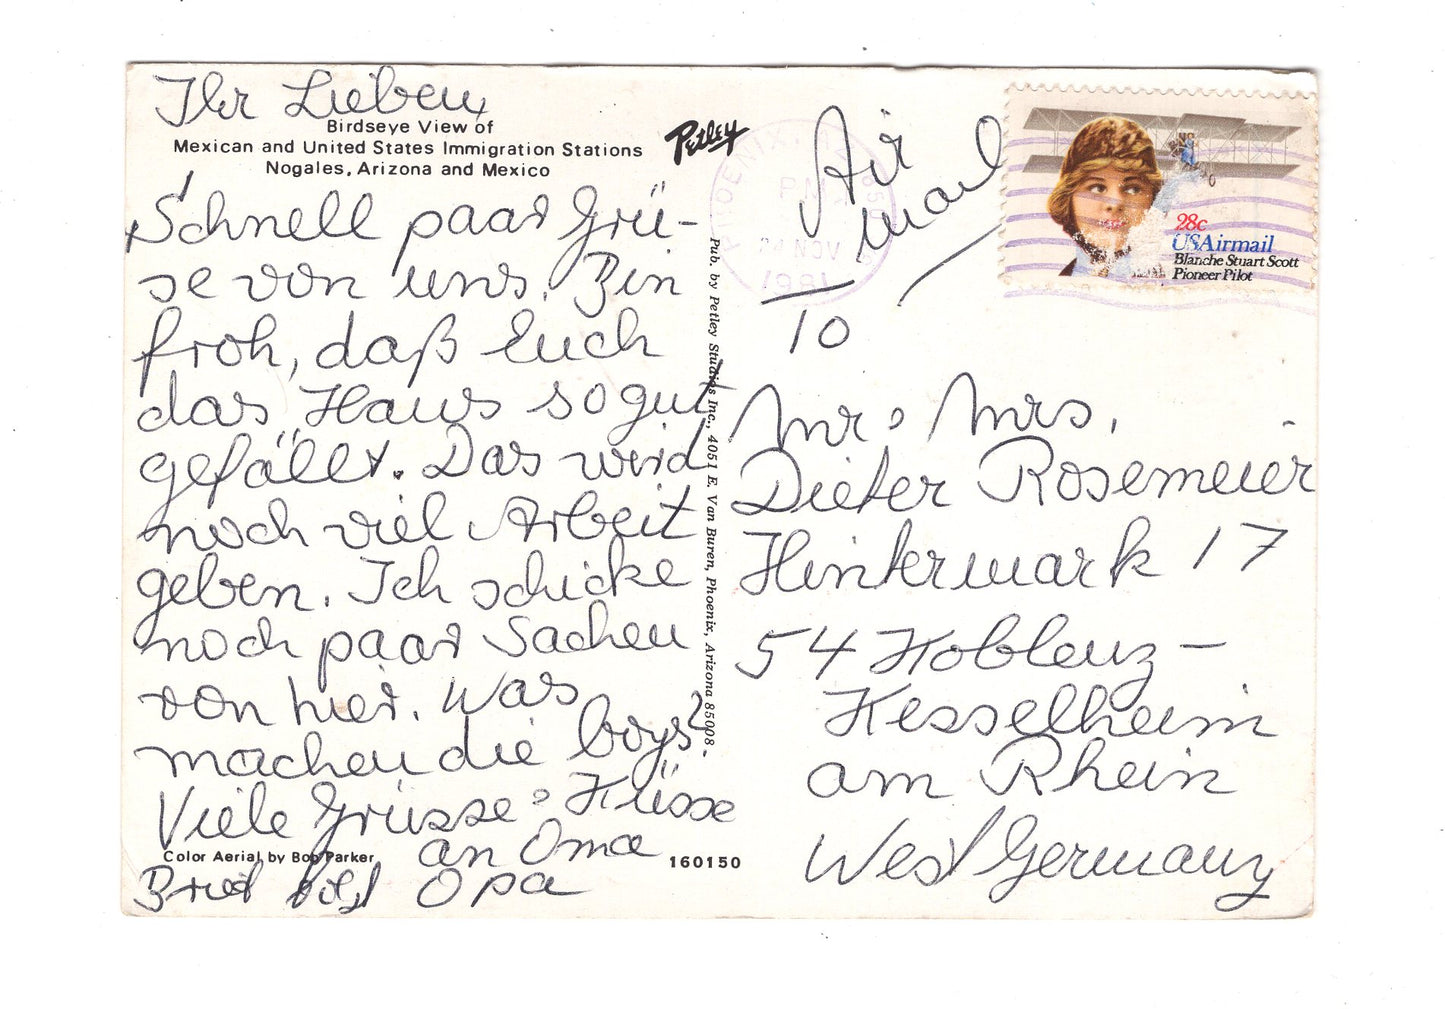 Ihr Lieben,
Birdseye View of
Mexican and United States Immigration Stations
Nogales, Arizona and Mexico
Petley
Schnell paar Grü-
se von uns. Bin
froh, daß Euch
das Haus so gut
gefällt. Das wird
noch viel Arbeit
geben. Ich schicke
noch paar Sachen
von hier. Was
machen die boys?
Viele Grüsse & Küsse
an Oma
Opa
Brief folgt
Color Aerial by Bob Parker
160150
Pub. by Petley Studios Inc., 4051 E. Van Buren, Phoenix, Arizona 85008.
PHOENIX,
PM
1981
Air
mail
28c
USAirmail
Blanche Stuart Scott
Pioneer Pilot
TO
Mr & Mrs.
Dieter Rosemeier
Hintermark 17
54 Koblenz -
Kesselheim
am Rhein
West Germany